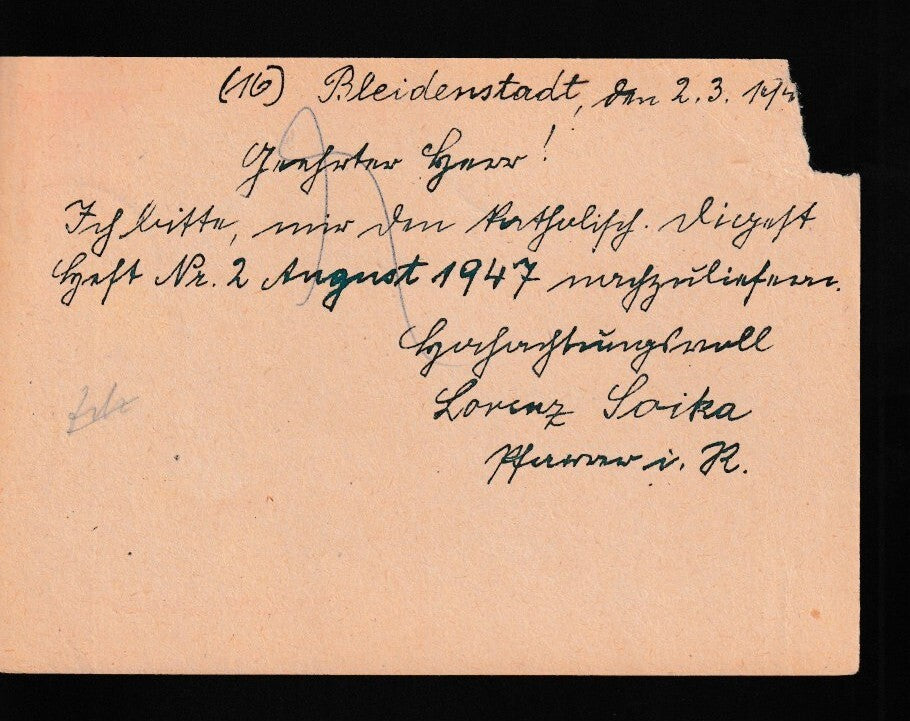 (16) Bleidenstadt, den 2.3. 194
Geehrter Herr!
Ich bitte, mir den Katholisch. Digest
Heft Nr. 2 August 1947 nachzuliefern.
Hochachtungsvoll
Lorenz Soika
Pfarrer i. R.